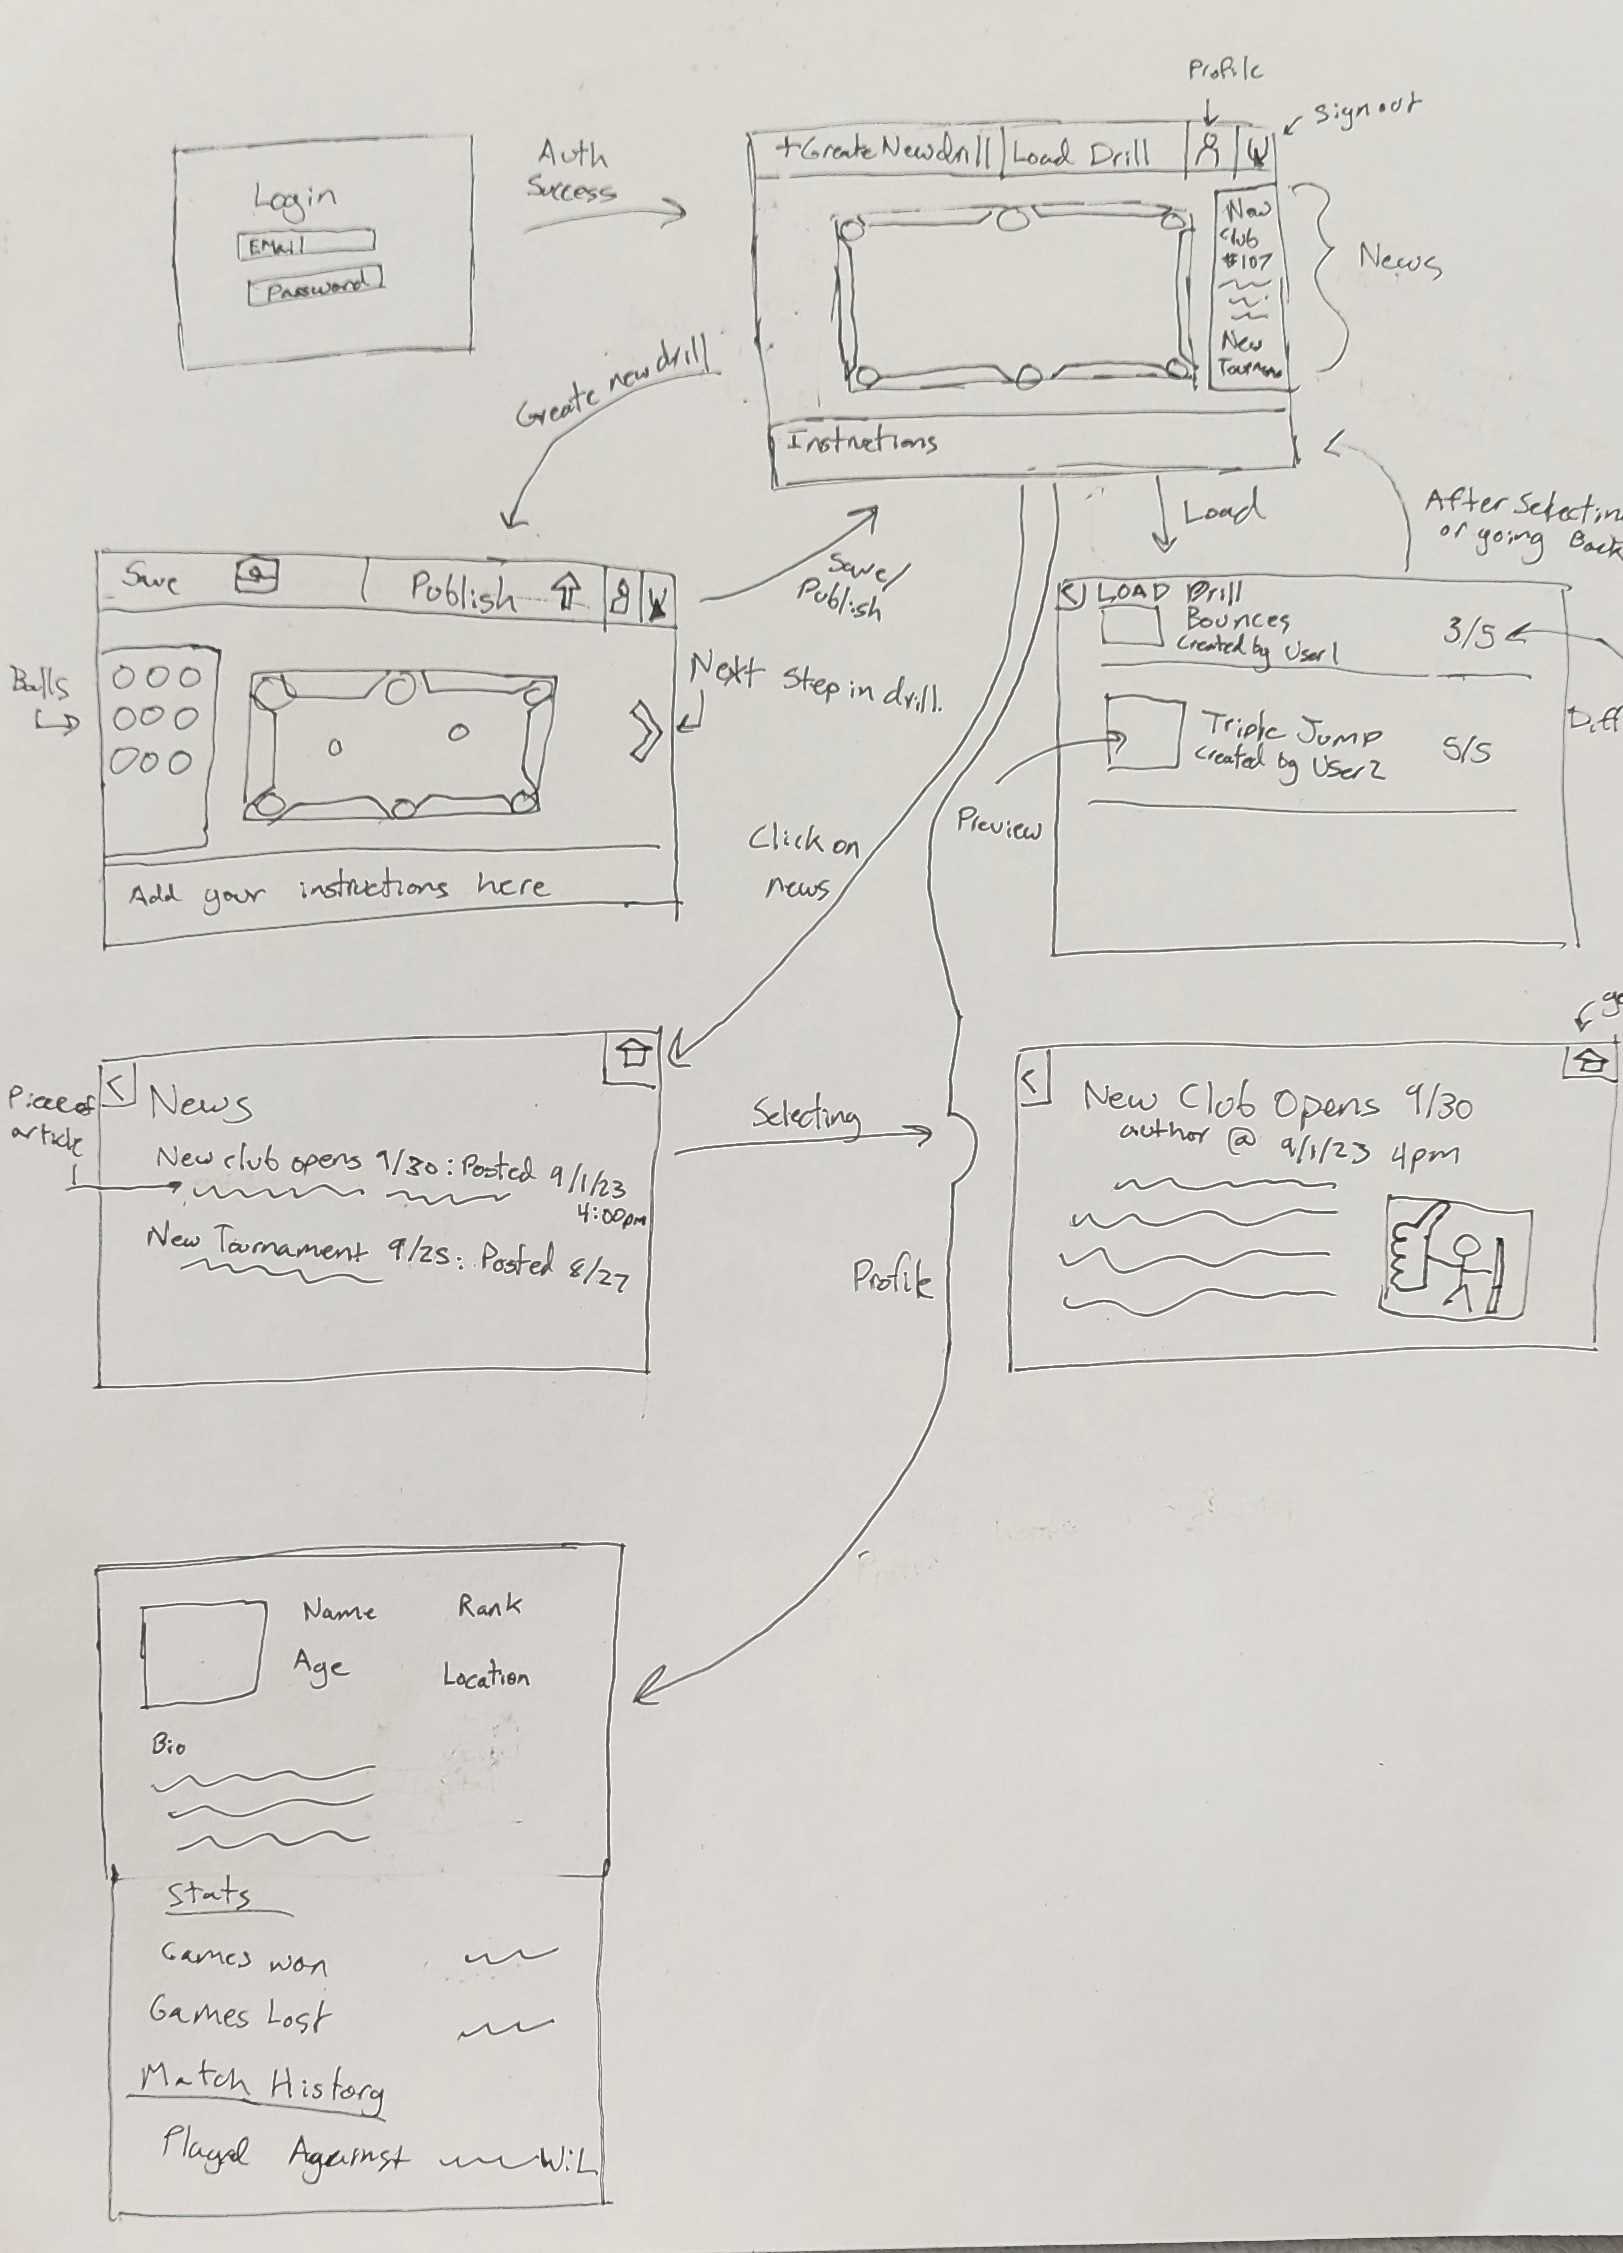 Profile
Sign out
Login
EMail
Password
Auth
Success
+Create New drill
Load Drill
New
Club
#107
New
News
Instructions
Create new drill
Load
After Selectin
or going Back
Save/
Publish
Save
Publish
Balls
Next Step in drill.
Add your instructions here
< LOAD Drill
Bounces
Created by User1
3/5
Triple Jump
Created by User2
5/5
Diff
Preview
Click on
news
Piece of
article
<
News
New club opens 9/30: Posted 9/1/23
4:00pm
New Tournament 9/25: Posted 8/27
Selecting
<
New Club Opens 9/30
author @ 9/1/23 4pm
Profile
Name
Rank
Age
Location
Bio
Stats
Games won
Games Lost
Match History
Played Against